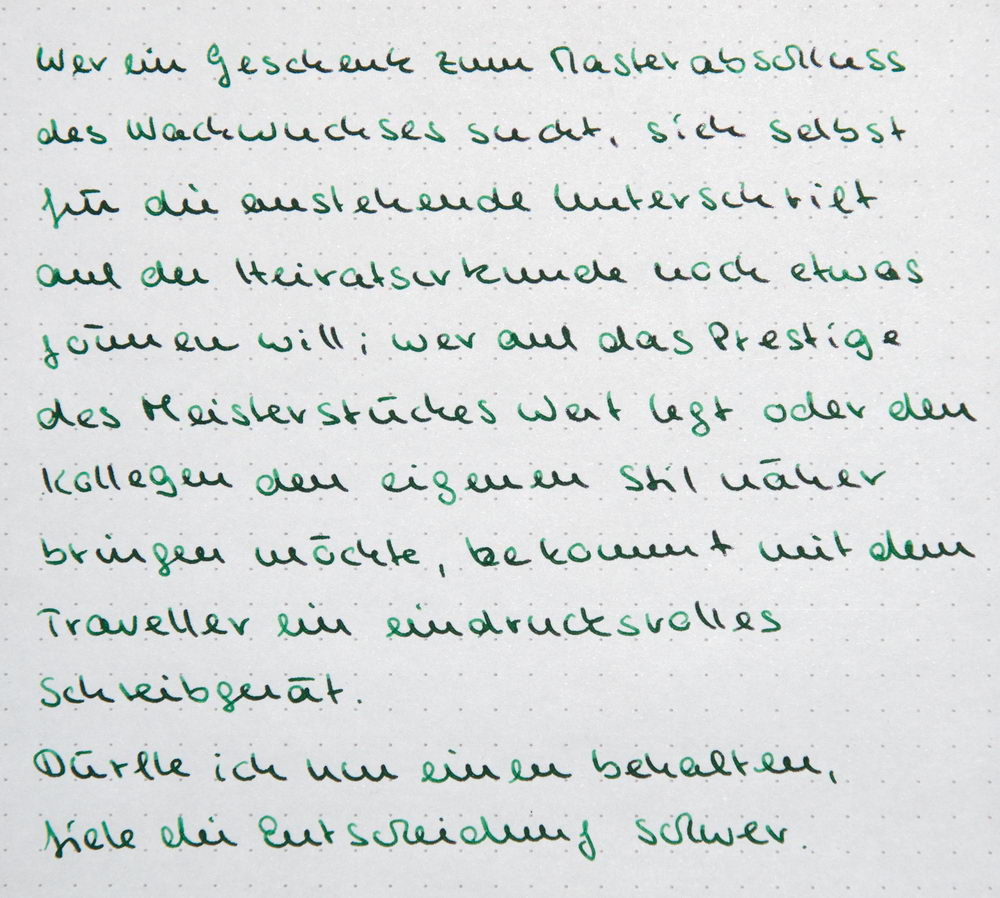 Wer ein Geschenk zum Masterabschluss
des Nachwuchses sucht, sich selbst
für die anstehende Unterschrift
auf der Heiratsurkunde noch etwas
gönnen will; wer auf das Prestige
des Meisterstückes Wert legt oder den
Kollegen den eigenen Stil näher
bringen möchte, bekommt mit dem
Traveller ein eindrucksvolles
Schreibgerät.
Dürfte ich nur einen behalten,
fiele die Entscheidung schwer.